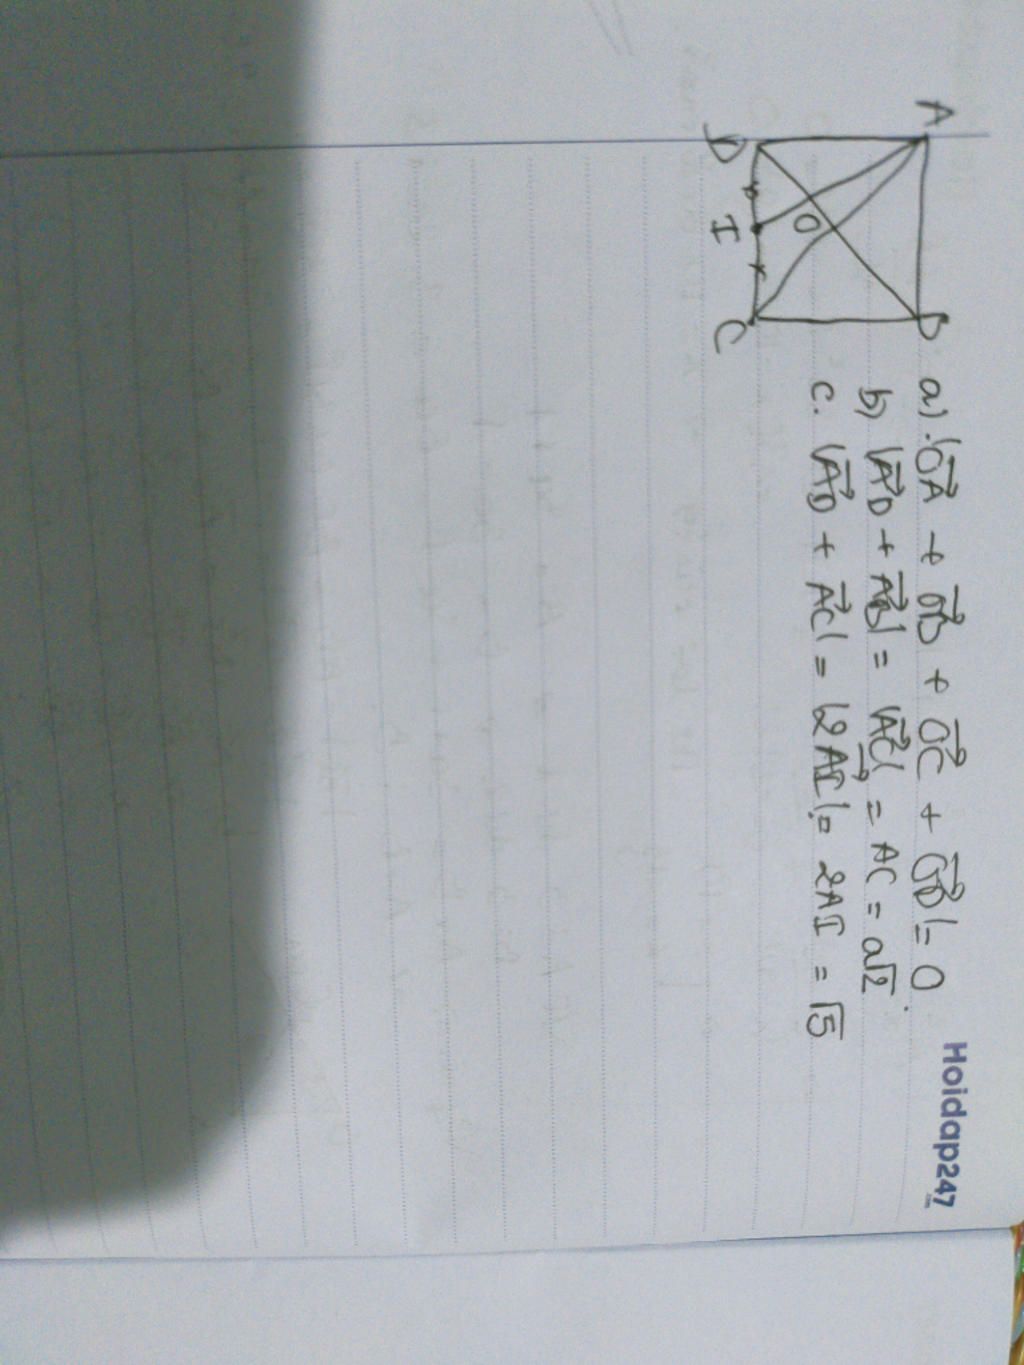 A
B
O
D
I
C
a) |OA⃗ + OB⃗ + OC⃗ + OD⃗| = 0.
b) |AD⃗ + AB⃗| = |AC⃗| = AC = a√2
c. |AD⃗ + AC⃗| = |2AI⃗| = 2AI = √5
Hoidap247
.com